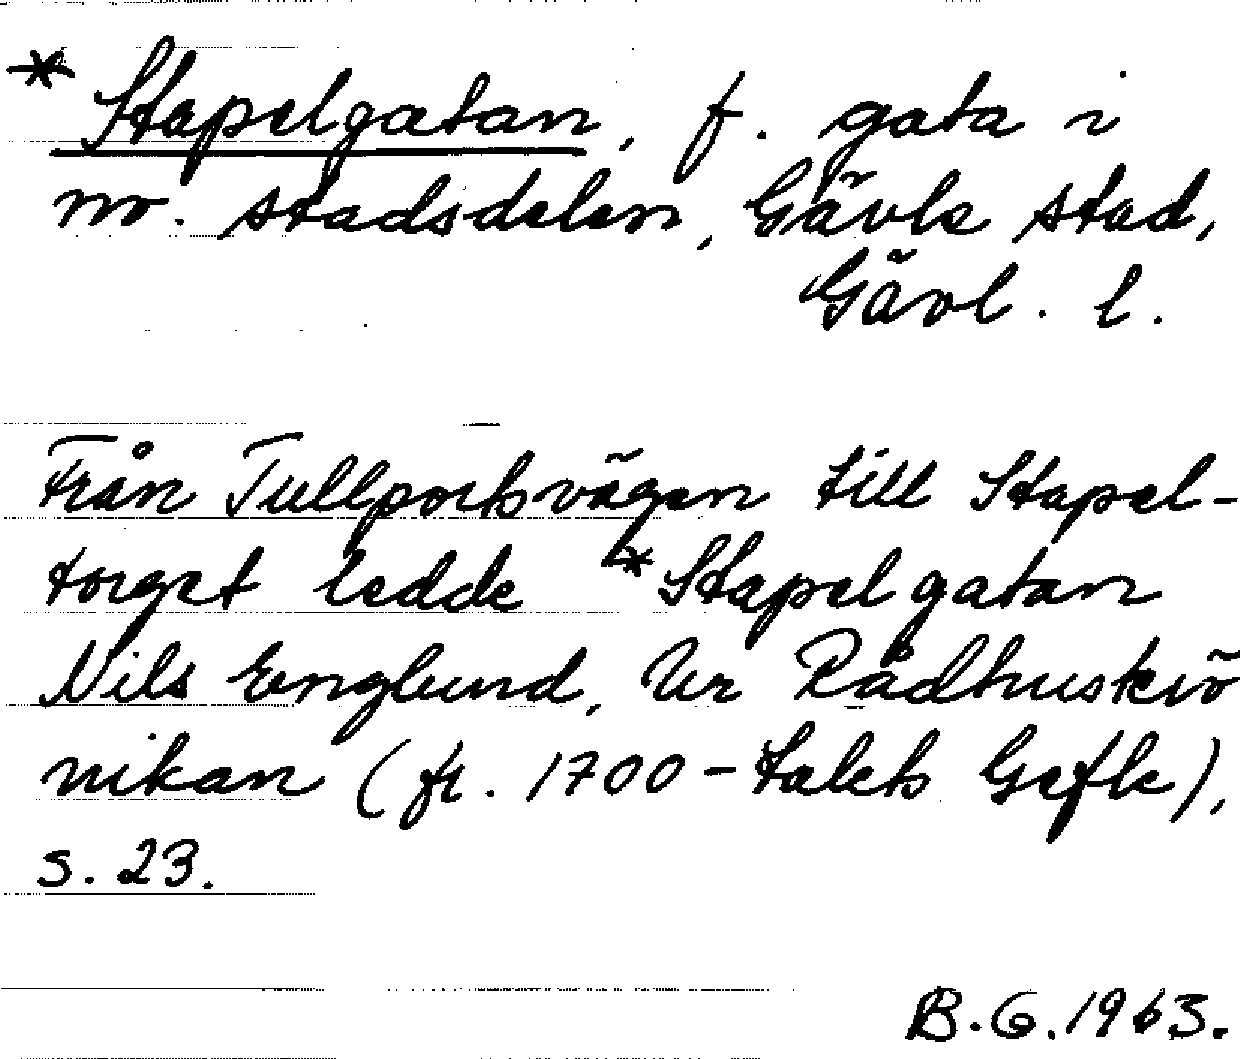 * Stapelgatan, f. gata i
nv. stadsdelen, Gävle stad,
Gävl. l.
Från Tullportsvägen till Stapel-
torget ledde *Stapelgatan
Nils Englund, Ur Rådhuskrö
nikan (fr. 1700-talets Gefle),
s. 23.
B.G.1963.